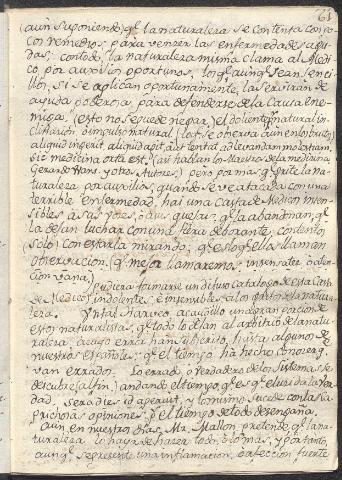 61
(aun suponiendo) q.e la naturaleza se contenta con po-
cos remedios para vencer las enfermedades agu-
das; con todo la naturaleza misma clama al Medi-
co por auxilios oportunos, los q.e aunq.e sean senci-
llos, si se aplican oportunamente, las servirán de
ayuda poderosa, para defenderse de la causa ene-
miga. (esto no se puede negar) el doliente natural in-
clinación o impulso natural (lo q.e se observa aun en los brutos)
aliquid ingerit, aliquid apit, aut tentat ad levandam molestiam.
sic medicina orta est. (asi hablan los Maestros de la medicina
Gerardo Wans. y otros Autores.) pero por mas q.e grite la na-
turaleza por auxilios, quando se ve atacada con una
terrible enfermedad, hai una casta de Medicos insen-
sibles á sus voces, á sus quejas; q.e la abandonan, q.e
la dejan luchar con una fiera deborante, contentos
(solo) con estarla mirando; q.e es lo q.e ellos llaman
observacion. (q.e mejor llamaremos insensatez o aten-
cion vana)
pudiera formarse un difuso catalogo de esta casta
de Medicos indolentes, é insensibles a los gritos de la natura-
leza. Y tal
estos naturalistas, q.e todo lo dejan al arbitrio de la natu-
raleza, a cuyo error han subscrito, hasta algunos de
nuestros Españoles; q.e el tiempo ha hecho conocer q.e
van errados. Lo errado o verdadero de los sistemas se
descubre (al fin) andando el tiempo, q.e es q.e el util da la ver-
dad, sera dies id aperuit, y lo mismo sucede con las ca-
prichosas opiniones, q.e el tiempo de todo desengaña.
Aun en nuestros dias, Mr. Mallon, pretende q.e la na-
turaleza lo haya de hacer todo, o lo mas, y por tanto,
aunq.e se presente una inflamacion, o afeccion fuerte